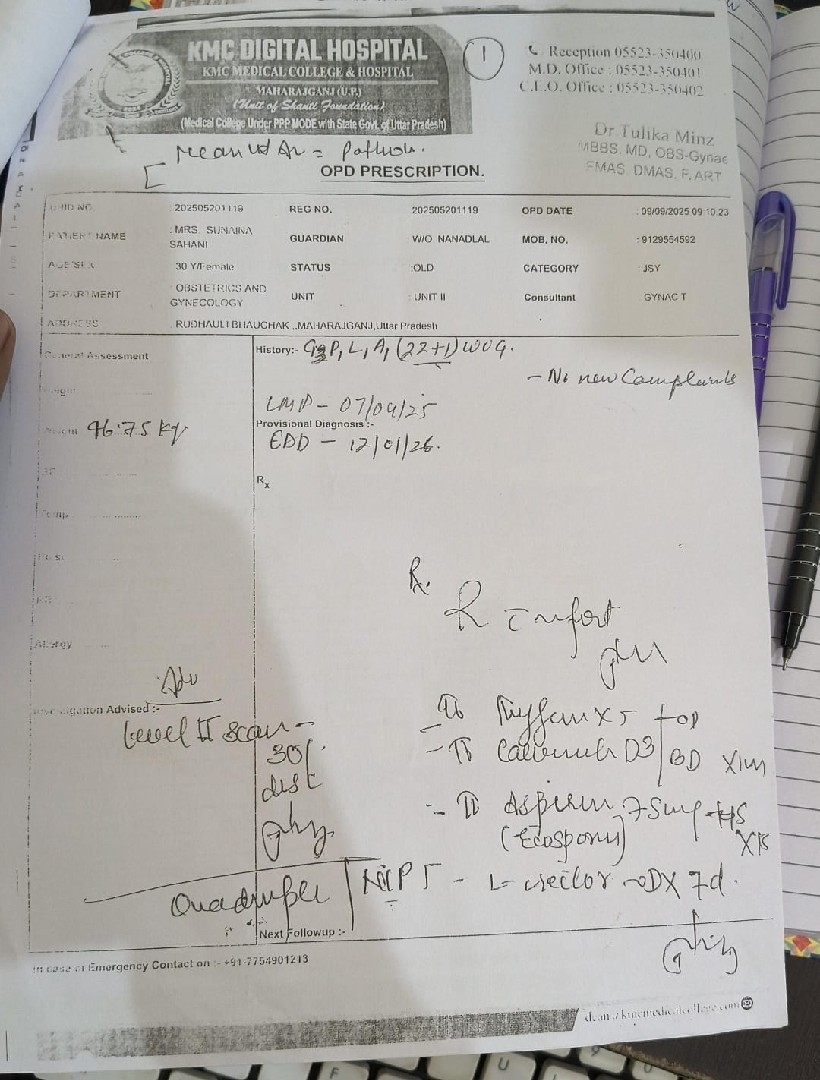 KMC DIGITAL HOSPITAL
KMC MEDICAL COLLEGE & HOSPITAL
MAHARAJGANJ (U.P.)
(Unit of Shanti Foundation)
(Medical College Under PPP MODE with State Govt. of Uttar Pradesh)
1
Reception 05523-350400
M.D. Office : 05523-350401
C.E.O. Office : 05523-350402
Dr Tulika Minz
MBBS, MD, OBS-Gynae
FMAS, DMAS, F, ART
OPD PRESCRIPTION.
UHID NO. : 202505201119 REG NO. 202505201119 OPD DATE : 09/09/2025 09:10:23
PATIENT NAME : MRS. SUNAINA SAHANI GUARDIAN W/O NANADLAL MOB, NO. : 9129564592
AGE/SEX 30 Y/Female STATUS : OLD CATEGORY : JSY
DEPARTMENT : OBSTETRICS AND GYNECOLOGY UNIT : UNIT II Consultant GYNAC T
ADDRESS : RUDHAULI BHAUCHAK ,,MAHARAJGANJ,Uttar Pradesh
General Assessment
History:- G3P1L1A1 (22+1) WOG.
- No new Complaints
LMP - 07/04/25
Provisional Diagnosis :-
EDD - 12/01/26.
46.75 kg
Rx
Temp
Rx
Adv
Investigation Advised :-
Level II scan -
30/
X 5 top
D3 BD X 1m
Aspirin 75mg HS
(Ecosporin)
Quadruple / NIPT - OD X 7d.
Next Followup :-
In case of Emergency Contact on :- +91-7754901213